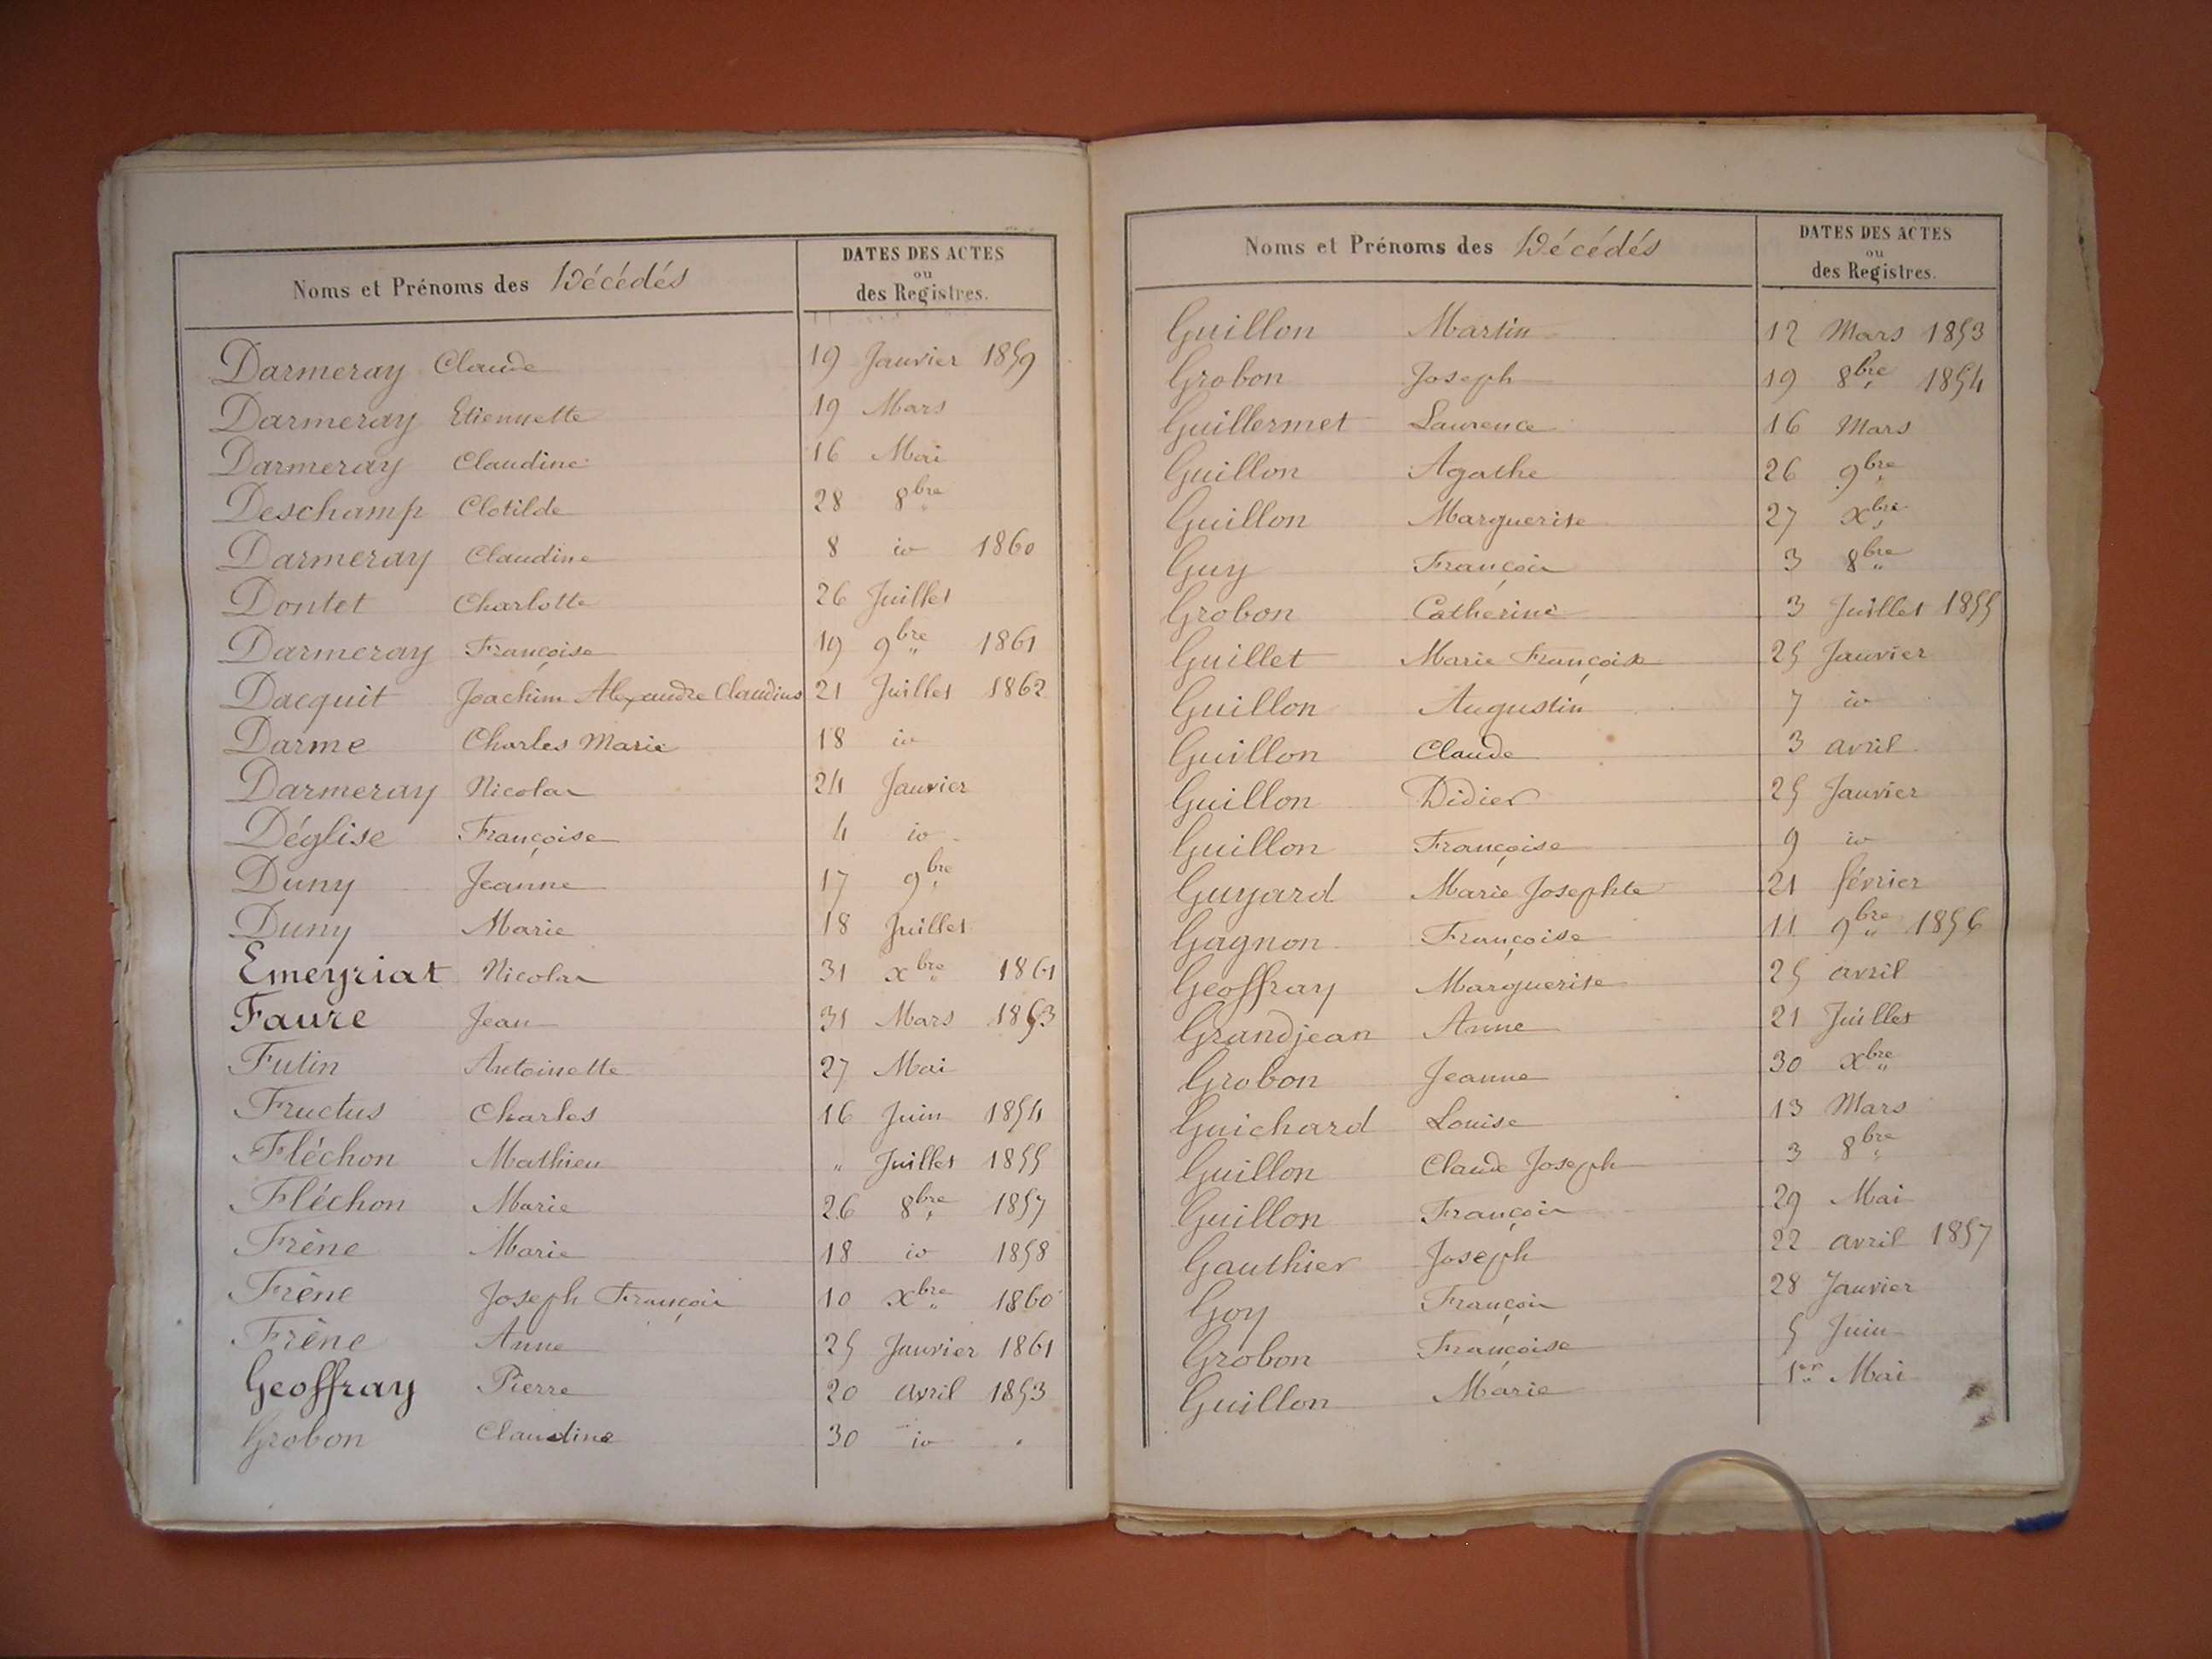 Noms et Prénoms des Décédés
DATES DES ACTES
ou
des Registres.
Darmeray Claude 19 Janvier 1859
Darmeray Etiennette 19 Mars
Darmeray Claudine 16 Mai
Deschamp Clotilde 28 8bre
Darmeray Claudine 8 io 1860
Dontet Charlotte 26 Juillet
Darmeray Françoise 19 9bre 1861
Dacquit Joachim Alexandre Claudius 21 Juillet 1862
Darme Charles Marie 18 io
Darmeray Nicolas 24 Janvier
Déglise Françoise 4 io
Duny Jeanne 17 9bre
Duny Marie 18 Juillet
Emeyriat Nicolas 31 xbre 1861
Faure Jean 31 Mars 1853
Futin Antoinette 27 Mai
Fructus Charles 16 Juin 1854
Fléchon Mathieu " Juillet 1855
Fléchon Marie 26 8bre 1857
Frène Marie 18 io 1858
Frène Joseph François 10 xbre 1860
Frène Anne 25 Janvier 1861
Geoffray Pierre 20 avril 1853
Grobon Claudine 30 io
Noms et Prénoms des Décédés
DATES DES ACTES
ou
des Registres.
Guillon Martin 12 Mars 1853
Grobon Joseph 19 8bre 1854
Guillermet Laurence 16 Mars
Guillon Agathe 26 9bre
Guillon Marguerite 27 xbre
Guy François 3 8bre
Grobon Catherine 3 Juillet 1855
Guillet Marie Françoise 25 Janvier
Guillon Augustin 7 io
Guillon Claude 3 avril
Guillon Didier 25 Janvier
Guillon Françoise 9 io
Guyard Marie Josephte 21 février
Gagnon Françoise 11 9bre 1856
Geoffray Marguerite 25 avril
Grandjean Anne 21 Juillet
Grobon Jeanne 30 xbre
Guichard Louise 13 Mars
Guillon Claude Joseph 3 8bre
Guillon François 29 Mai
Gauthier Joseph 22 avril 1857
Goy François 28 Janvier
Grobon Françoise 5 Juin
Guillon Marie 1er Mai